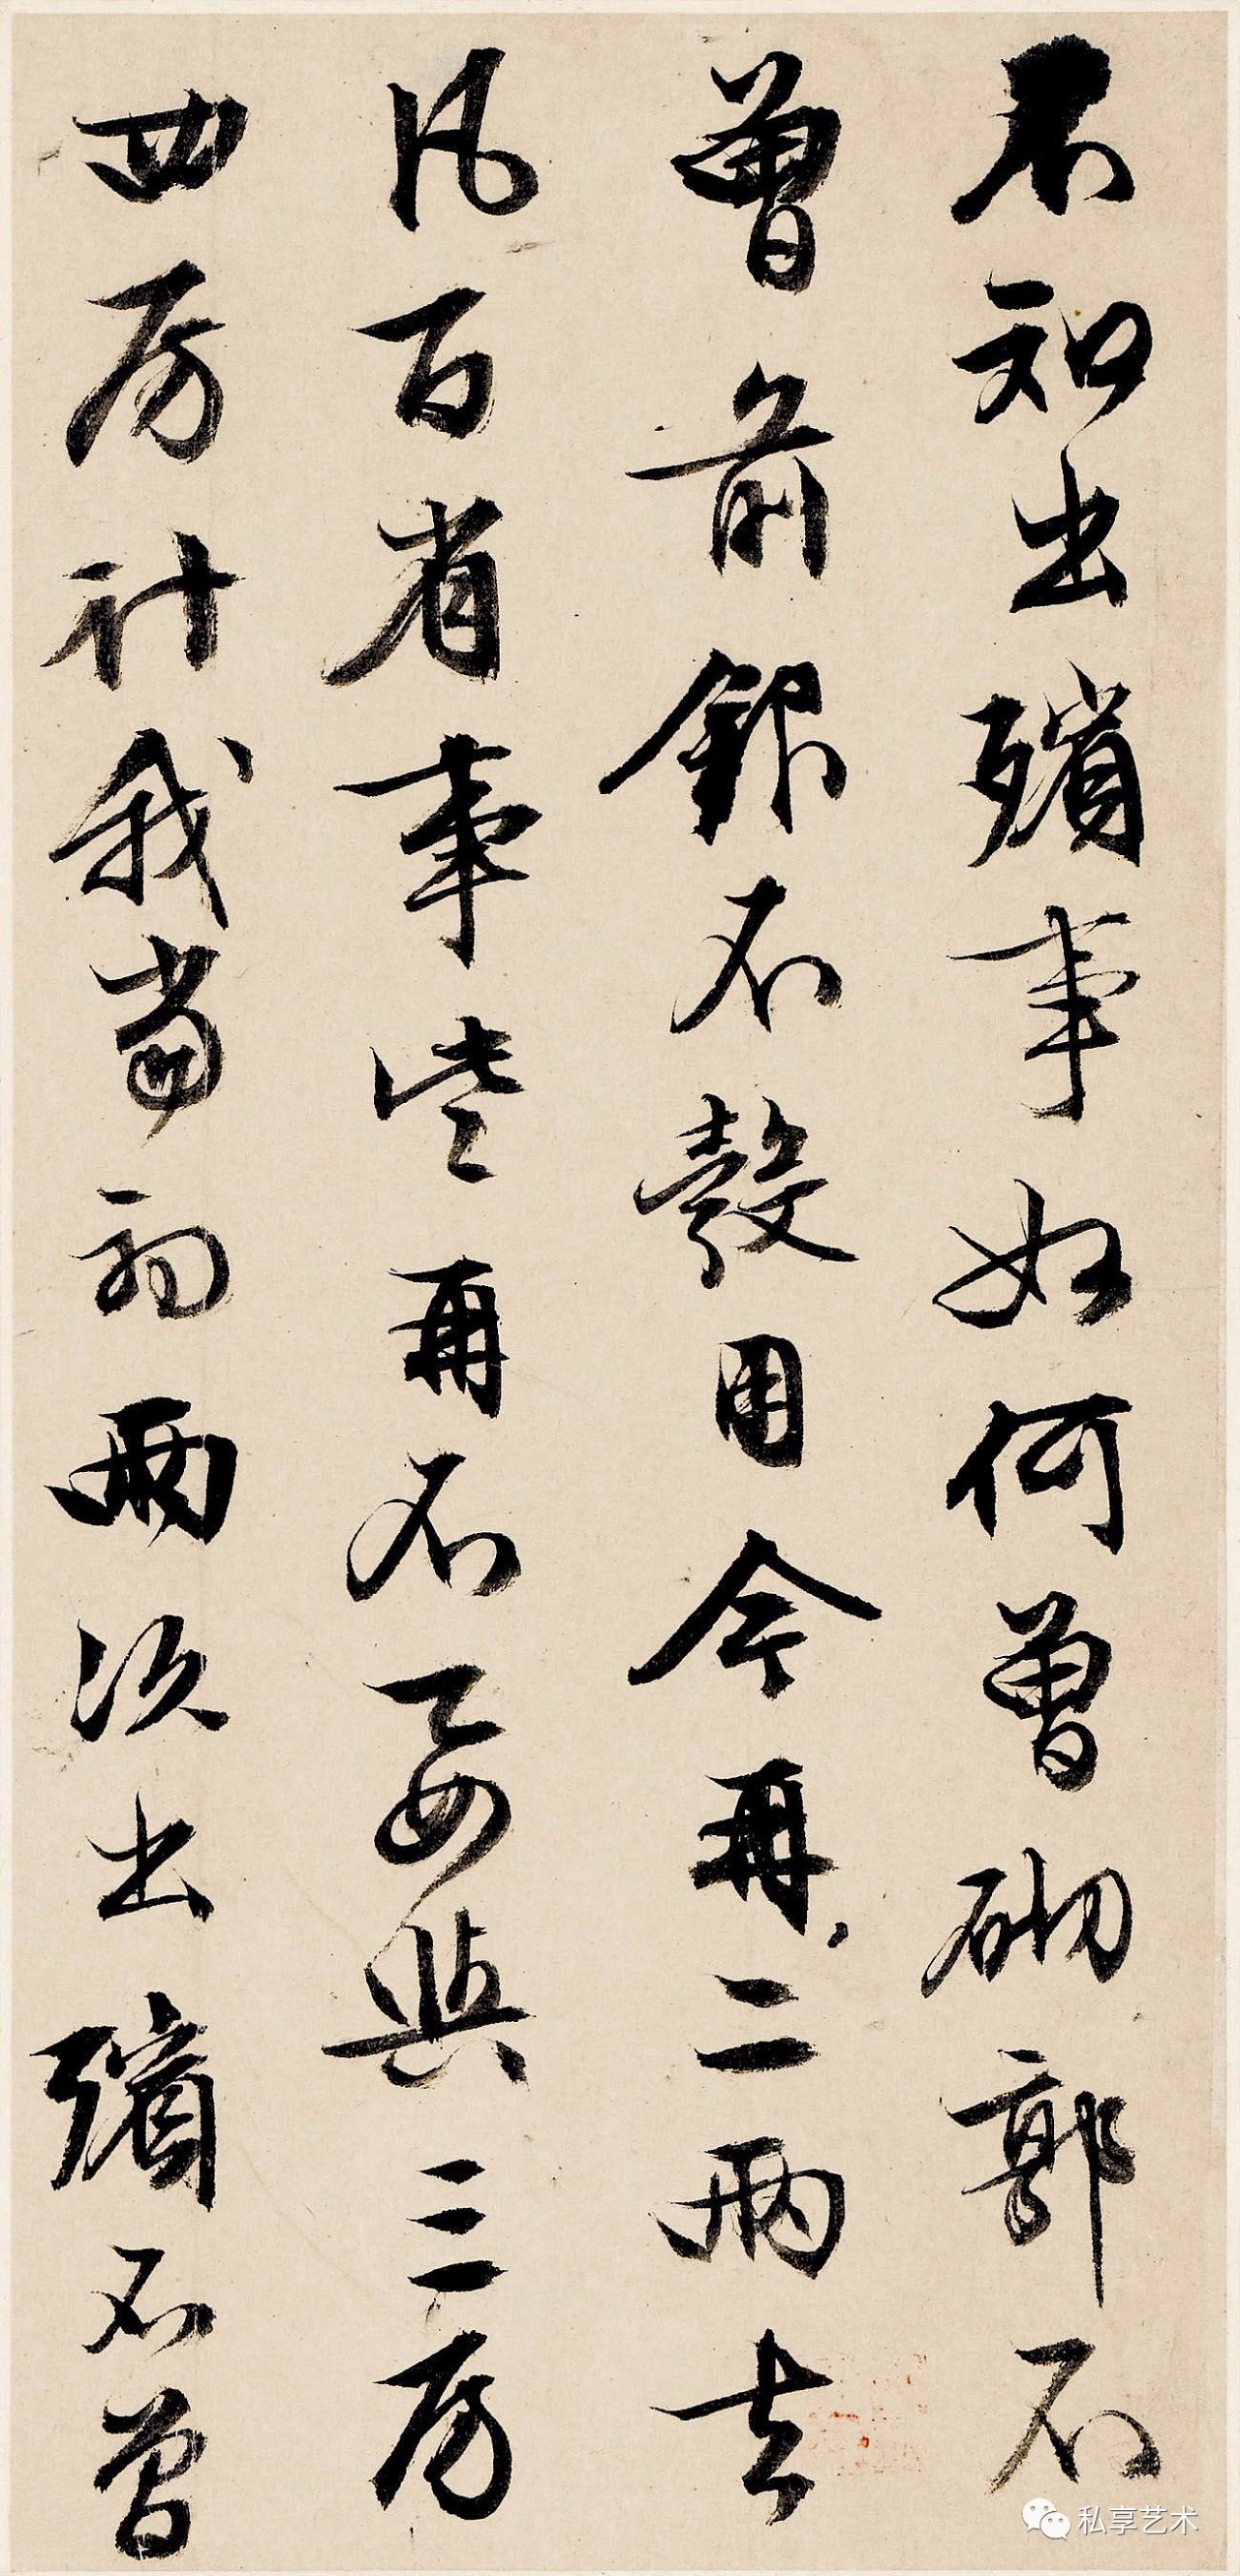 不知出殯事如何曾砌郭不
曾前銀不彀用今再二兩去
凡百省事些再不要與三房
四房計我當初兩次出殯不曾
私享艺术